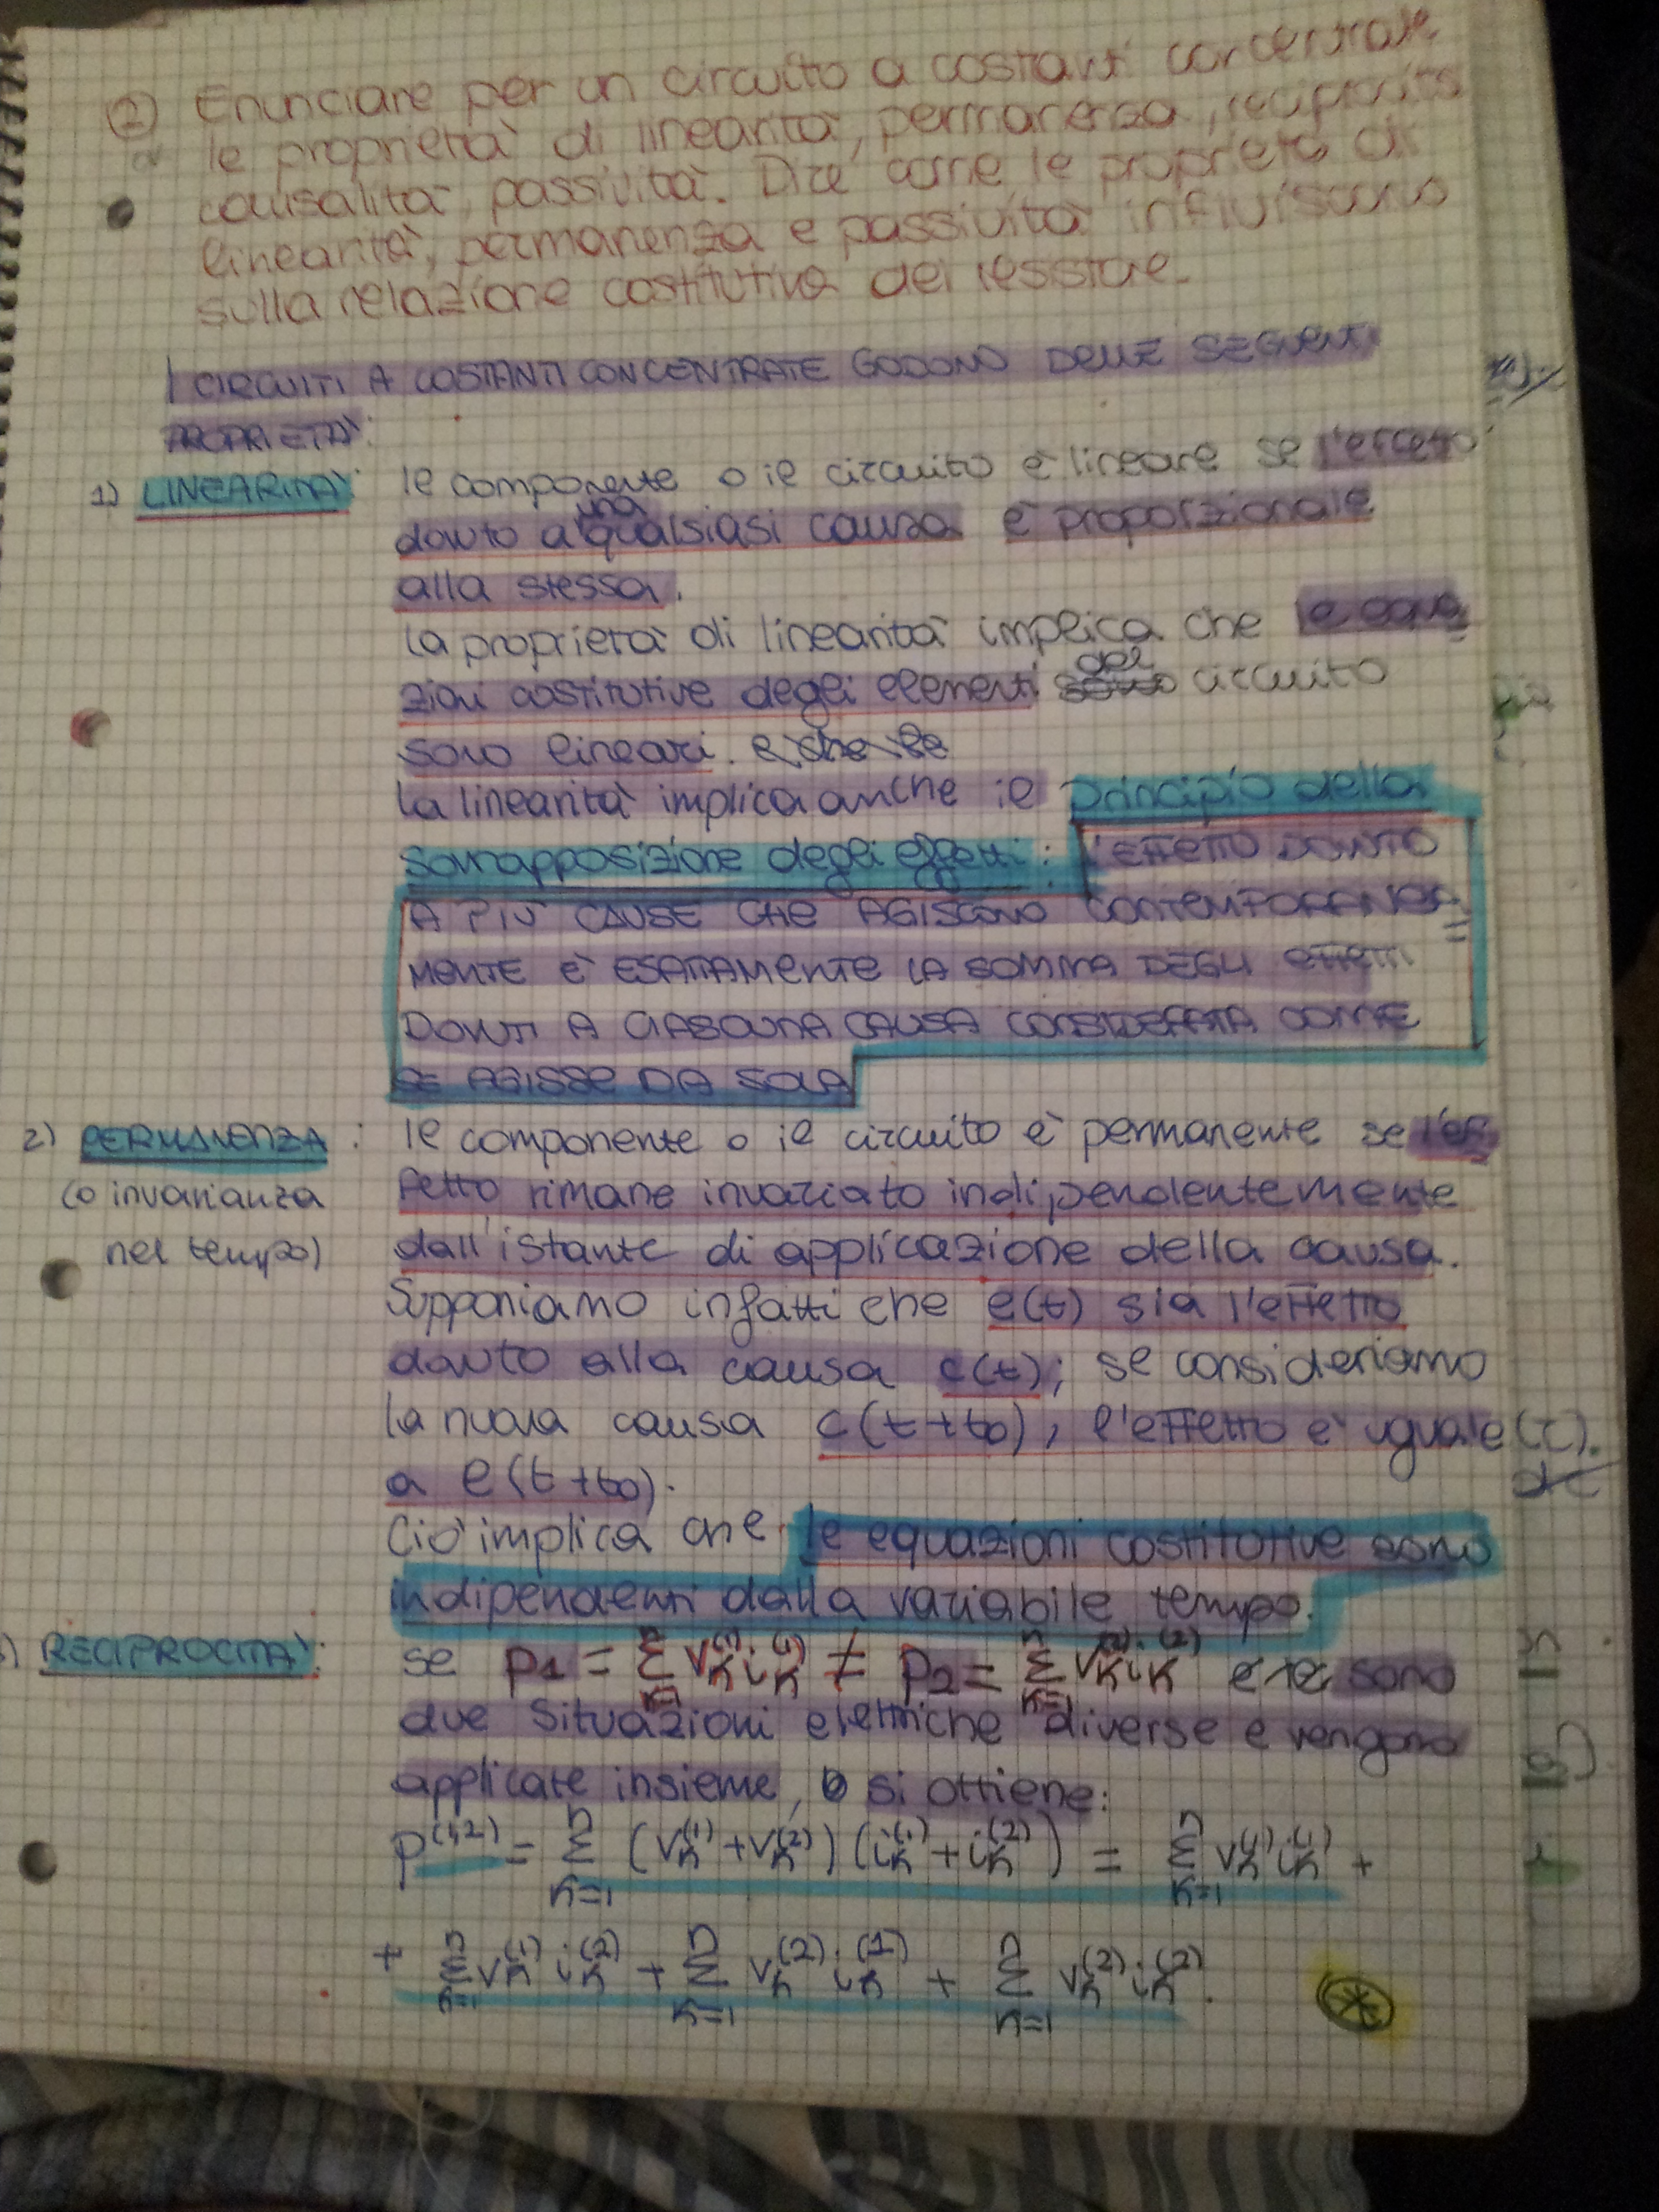 ② Enunciare per un circuito a costanti concentrate
le proprietà di linearità, permanenza, reciprocità
causalità, passività. Dire come le proprietà di
linearità, permanenza e passività influiscono
sulla relazione costitutiva del resistore.
I CIRCUITI A COSTANTI CONCENTRATE GODONO DELLE SEGUENTI
PROPRIETÀ:
1) LINEARITÀ: Il componente o il circuito è lineare se l'effetto
dovuto a una qualsiasi causa è proporzionale
alla stessa.
La proprietà di linearità implica che le equa
zioni costitutive degli elementi del circuito
sono lineari.
La linearità implica anche il principio della
sovrapposizione degli effetti: L'EFFETTO DOVUTO
A PIÙ CAUSE CHE AGISCONO CONTEMPORANEA
MENTE È ESATTAMENTE LA SOMMA DEGLI EFFETTI
DOVUTI A CIASCUNA CAUSA CONSIDERATA COME
SE AGISSE DA SOLA
2) PERMANENZA: Il componente o il circuito è permanente se l'ef
(o invarianza fetto rimane invariato indipendentemente
nel tempo) dall'istante di applicazione della causa.
Supponiamo infatti che e(t) sia l'effetto
dovuto alla causa c(t); se consideriamo
la nuova causa c(t+t0), l'effetto è uguale
a e(t+t0).
Ciò implica che le equazioni costitutive sono
indipendenti dalla variabile tempo.
) RECIPROCITÀ: se p1 = Σ_{k=1}^{n} v_k^{(1)} i_k^{(1)} ≠ p2 = Σ_{k=1}^{n} v_k^{(2)} i_k^{(2)} sono
due situazioni elettriche diverse e vengono
applicate insieme, si ottiene:
p^{(1,2)} = Σ_{k=1}^{n} (v_k^{(1)} + v_k^{(2)}) (i_k^{(1)} + i_k^{(2)}) = Σ_{k=1}^{n} v_k^{(1)} i_k^{(1)} +
+ Σ_{k=1}^{n} v_k^{(1)} i_k^{(2)} + Σ_{k=1}^{n} v_k^{(2)} i_k^{(1)} + Σ_{k=1}^{n} v_k^{(2)} i_k^{(2)}.